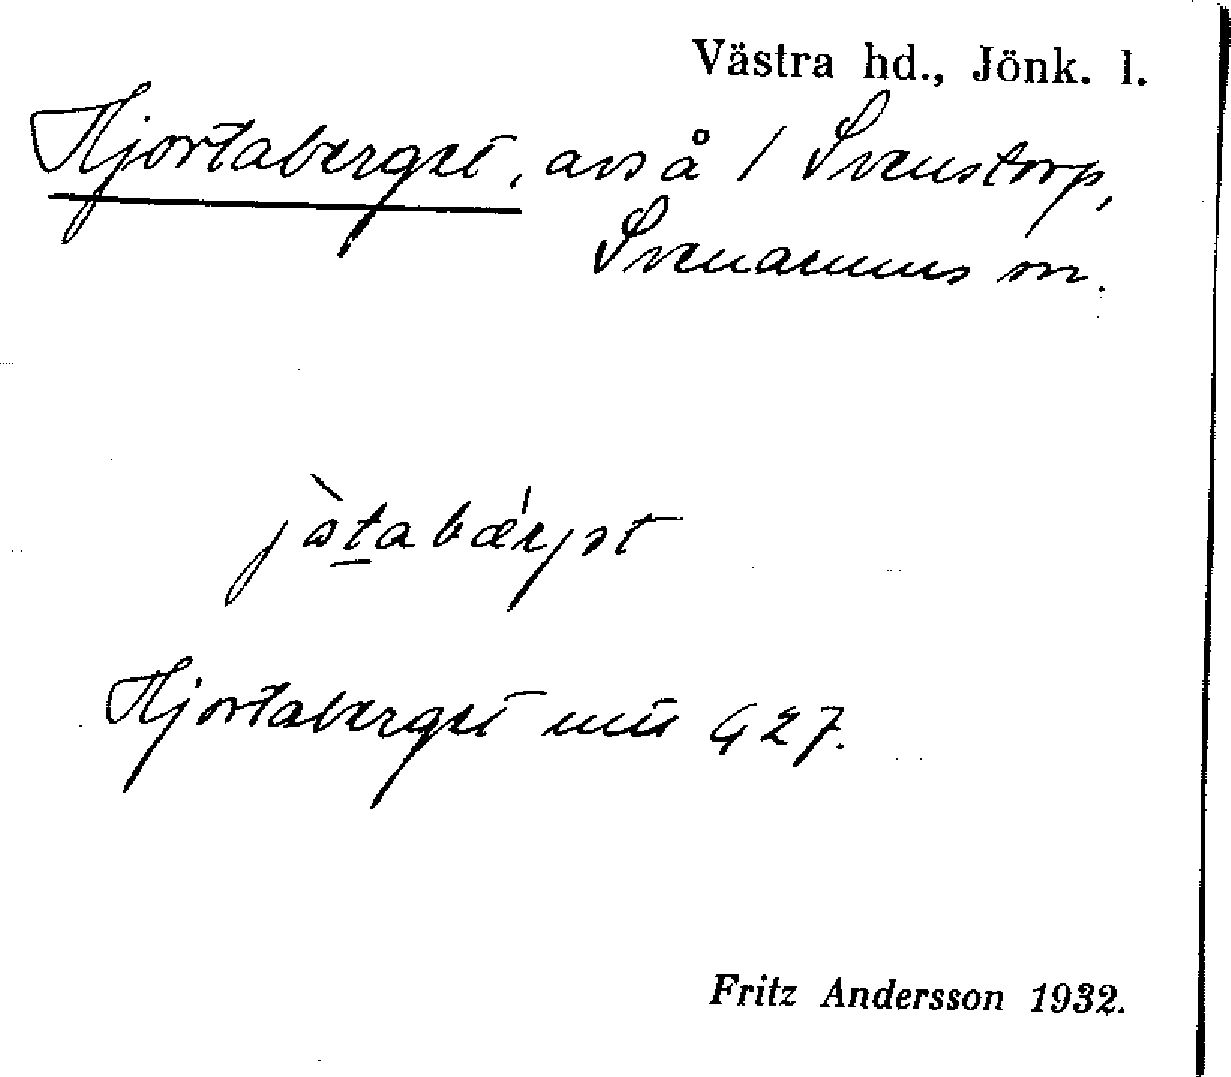 Västra hd., Jönk. l.
Hjortaberget, avs å / Svenstorp,
Svenarums sn.
Hjortaberget 27.
Fritz Andersson 1932.